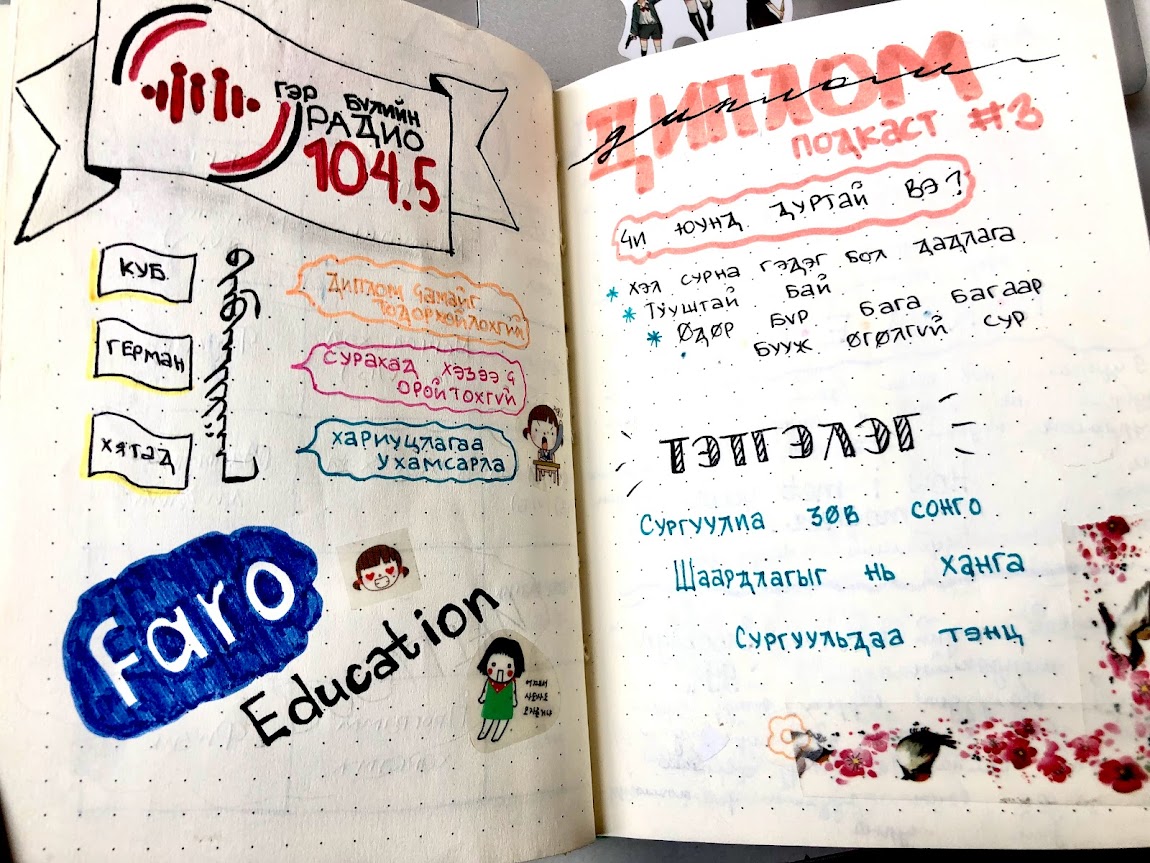 ГЭР БҮЛИЙН
РАДИО
104.5
КУБ
ГЕРМАН
ХЯТАД
ДИПЛОМ ЧАМАЙГ
ТОДОРХОЙЛОХГҮЙ
СУРАХАД ХЭЗЭЭ Ч
ОРОЙТОХГҮЙ
ХАРИУЦЛАГАА
УХАМСАРЛА
Faro
Education
ДИПЛОМ
диплом
ПОДКАСТ #3
ЧИ ЮУНД ДУРТАЙ ВЭ?
* ХЭЛ СУРНА ГЭДЭГ БОЛ ДАДЛАГА
* ТУУШТАЙ БАЙ
* ӨДӨР БҮР БАГА БАГААР
БУУЖ ӨГӨЛГҮЙ СУР
ТЭТГЭЛЭГ
Сургуулиа зөв сонго
Шаардлагыг нь ханга
Сургуульдаа тэнц